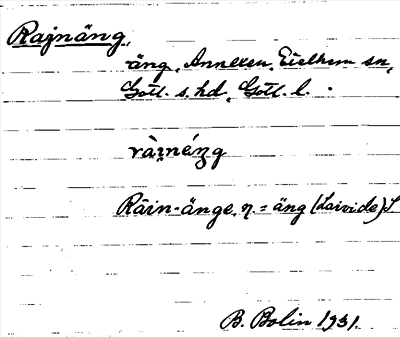 Rajnäng.
äng, Annexen, Eielhem sn,
Gotl. s. hd, Gotl. l.
ràı̣néŋg
Räin-änge, n. = äng (Laivide) L
B. Bolin 1931.